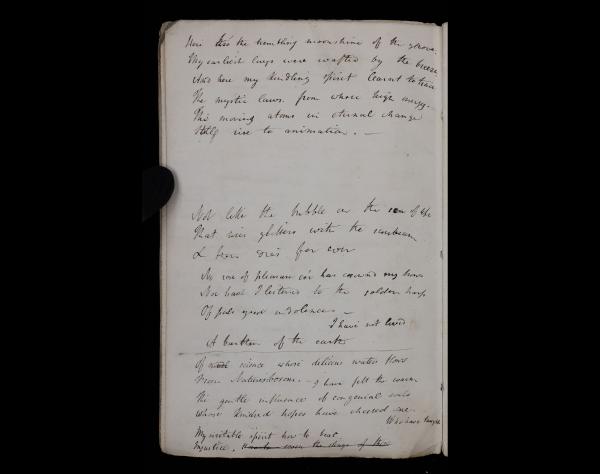 Here tis the trembling moonshine of the grove.
My earliest lays were wafted by the breeze
And here my kindling spirit learnt to trace
The mystic laws. from whose high energy
The moving atoms in eternal change
Still rise to animation. —
Not like the bubble on the sea of life
That rises glitters with the sunbeam
& dies for ever
No rose of pleasure e'er has crown'd my brow
Nor have I listened to the golden harp
Of indolence —
I have not lived
A burthen of the earth
Of science whose delicious water flows
From Natures bosom. — I have felt the warm
The gentle influence of congenial souls
Whose kindred hopes have cheered me.
Who have taught
My irritable spirit how to bear
Injustice.